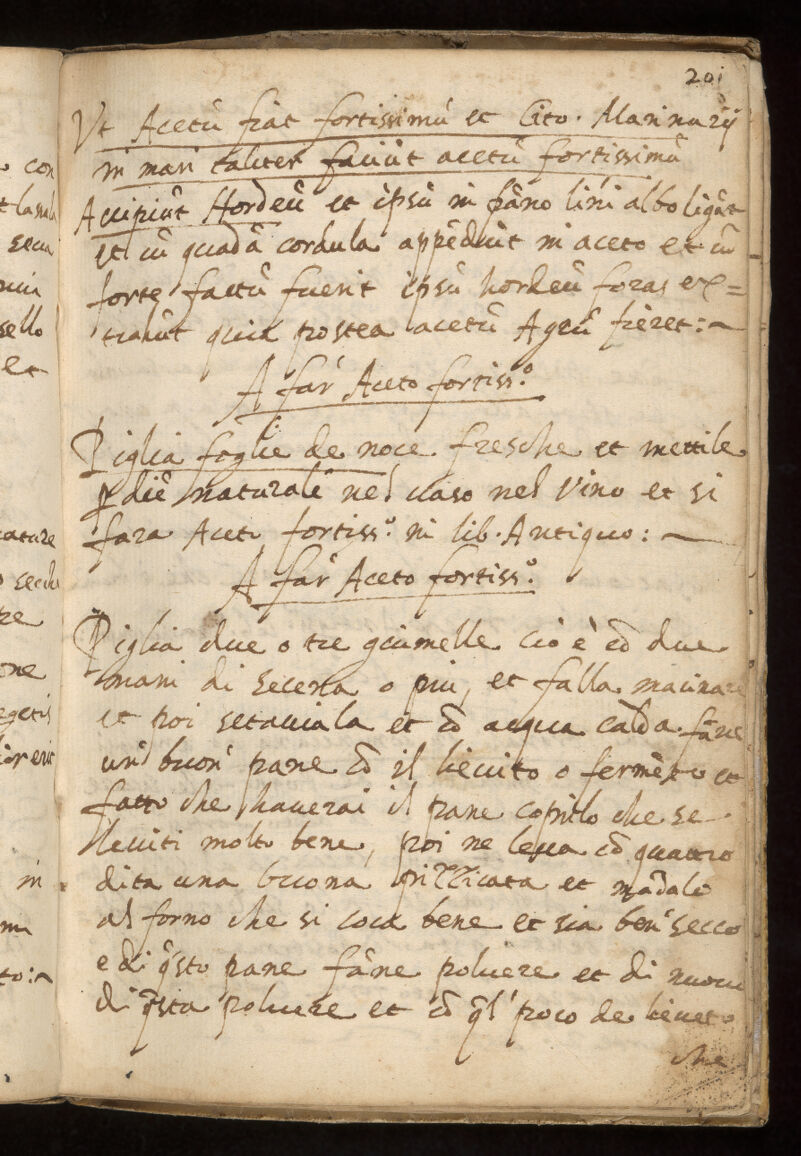 201
Vt Acetũ fiat fortissimũ et Cito. Marinarij
in mari taliter faciũt acetũ fortissimũ
Accipiũt Hordeũ et ipsũ in pãno lini albo ligãt
et cũ quadã cordula appẽdũt in aceto et cũ
forte factũ fuerit ipsũ hordeũ foras ex=
trahũt quia postea acetũ Agrũ fieret:~
A far Aceto fortiss.º
Piglia foglie de noce fresche et mettile
ꝑ diẽ naturale nel uaso nel Vino et si
fara Aceto fortiss.º in lib. Antiquo:~
A far Aceto fortiss.º
Piglia due o tre giumelle cio è cõ due
mani di secera o piu, et falla macinare
et poi setacciala et cõ acqua calda fãne
un' buon' pane cõ il lieuito o fermẽto et
fatto che hauerai il pane coprilo che se
leuiti molto bene, poi ne leua cõ quattro
dita una buona pizzicata et mãdalo
al forno che si coca bene et sia ben' secco
e di q̃sto pane fãne poluere et di nuouo
di q̃sta poluere et cõ q̃l' poco de lieuito
che
con
secca
sello
et
ature
secche
tre
one
in
to:~